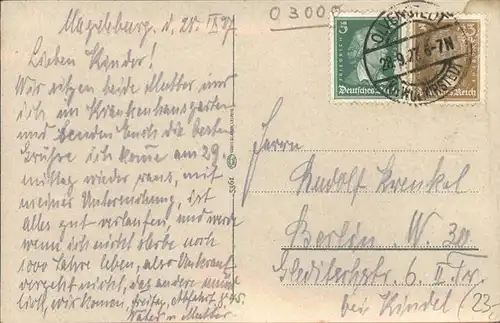 Magdeburg, d. 28. IX 27
Lieben Kinder!
Wir sitzen beide Mutter und
ich im Krankenhausgarten
und senden Euch die besten
Grüsse ich komme am 29.
mittag wieder raus, mit
meiner Untersuchung, ist
alles gut verlaufen, und werde
wenn ich nicht sterbe noch
1000 Jahre leben, also Unkraut
vergeht nicht, das andere münd
lich, wir kommen, freitag,
Vater u. Mutter
03000
5
Deutsches
Reich
OLVENSTEDT
28.9.27. 6-7N
5364
Herrn
Rudolf Krenkel
Berlin W. 30
Gleditschstr. 6 II Tr.
bei Kindel (23)